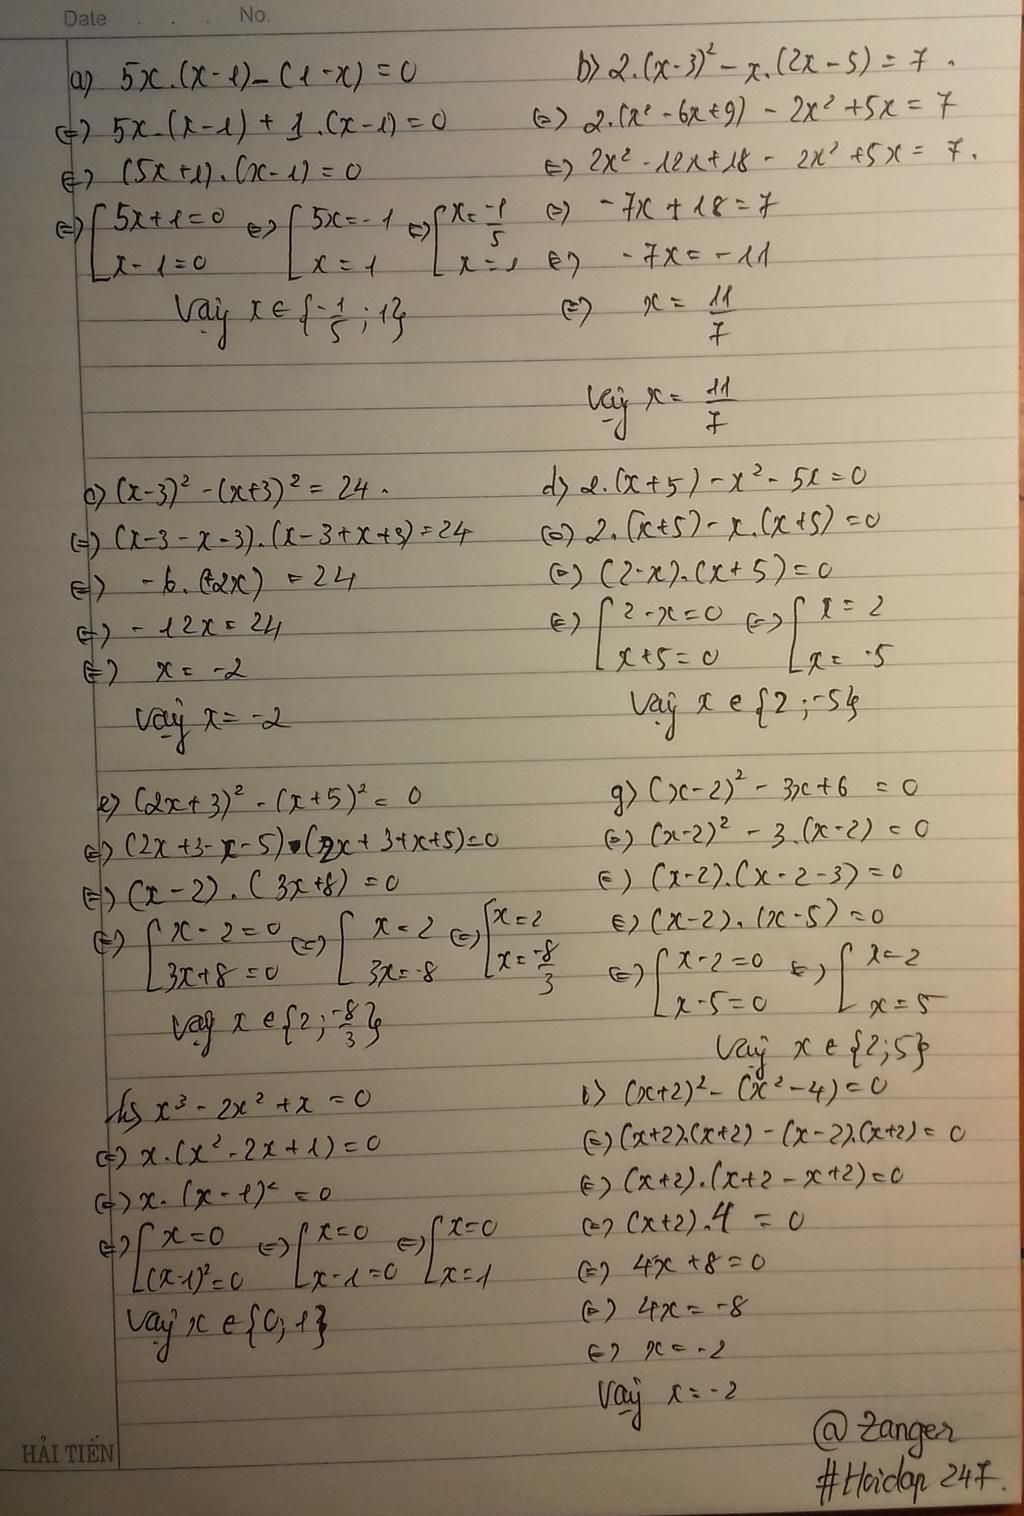 Date . . . No.
a) 5x.(x-1)-(1-x)=0
<=> 5x.(x-1)+1.(x-1)=0
<=> (5x+1).(x-1)=0
<=> [5x+1=0 <=> [5x=-1 <=> [x=-1/5
x-1=0 x=1 x=1
Vậy x∈{-1/5;1}
b) 2.(x-3)²-x.(2x-5)=7.
<=> 2.(x²-6x+9)-2x²+5x=7
<=> 2x²-12x+18-2x²+5x=7.
<=> -7x+18=7
<=> -7x=-11
<=> x=11/7
Vậy x=11/7
c) (x-3)²-(x+3)²=24.
<=> (x-3-x-3).(x-3+x+3)=24
<=> -6.(2x)=24
<=> -12x=24
<=> x=-2
Vậy x=-2
d) 2.(x+5)-x²-5x=0
<=> 2.(x+5)-x.(x+5)=0
<=> (2-x).(x+5)=0
<=> [2-x=0 <=> [x=2
x+5=0 x=-5
Vậy x∈{2;-5}
e) (2x+3)²-(x+5)²=0
<=> (2x+3-x-5).(2x+3+x+5)=0
<=> (x-2).(3x+8)=0
<=> [x-2=0 <=> [x=2 <=> [x=2
3x+8=0 3x=-8 x=-8/3
Vậy x∈{2;-8/3}
g) (x-2)²-3x+6=0
<=> (x-2)²-3.(x-2)=0
<=> (x-2).(x-2-3)=0
<=> (x-2).(x-5)=0
<=> [x-2=0 <=> [x=2
x-5=0 x=5
Vậy x∈{2;5}
h) x³-2x²+x=0
<=> x.(x²-2x+1)=0
<=> x.(x-1)²=0
<=> [x=0 <=> [x=0 <=> [x=0
(x-1)²=0 x-1=0 x=1
Vậy x∈{0;1}
i) (x+2)²-(x²-4)=0
<=> (x+2).(x+2)-(x-2).(x+2)=0
<=> (x+2).(x+2-x+2)=0
<=> (x+2).4=0
<=> 4x+8=0
<=> 4x=-8
<=> x=-2
Vậy x=-2
HẢI TIẾN
@Zanger
#Hoidap 247.